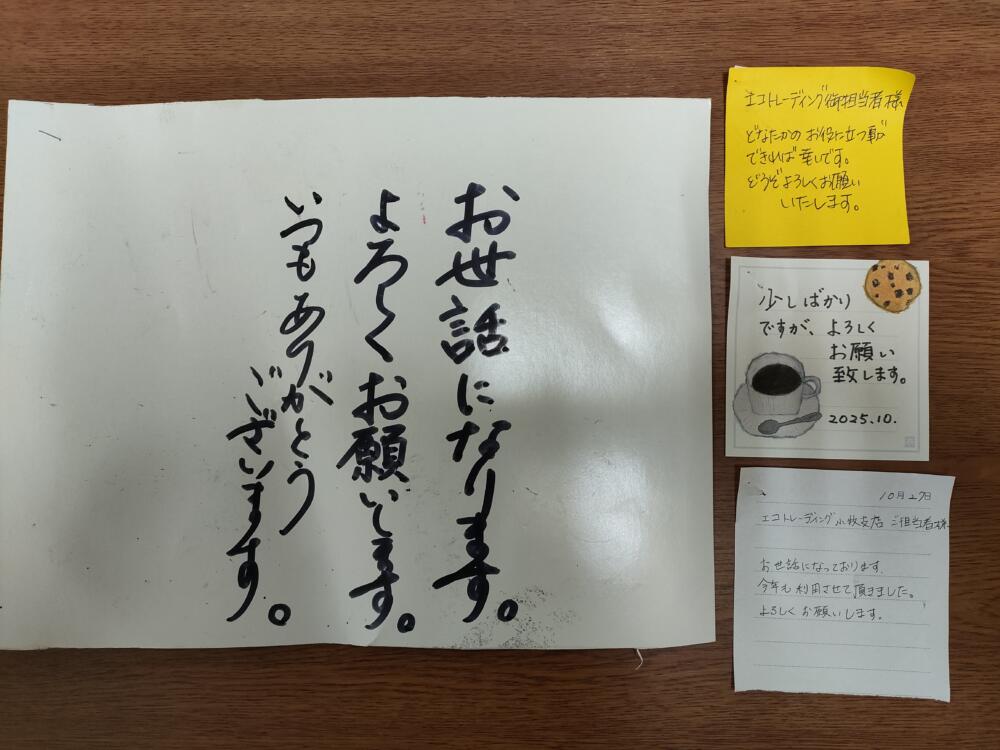 お世話になります。
よろしくお願いします。
いつもありがとう
ございます。
エコトレーディング御担当者様
どなたかのお役に立つ事が
できれば幸いです。
どうぞよろしくお願い
いたします。
少しばかり
ですが、よろしく
お願い
致します。
2025.10.
10月27日
エコトレーディング小牧支店 ご担当者様
お世話になっております。
今年も利用させて頂きました。
よろしくお願いします。